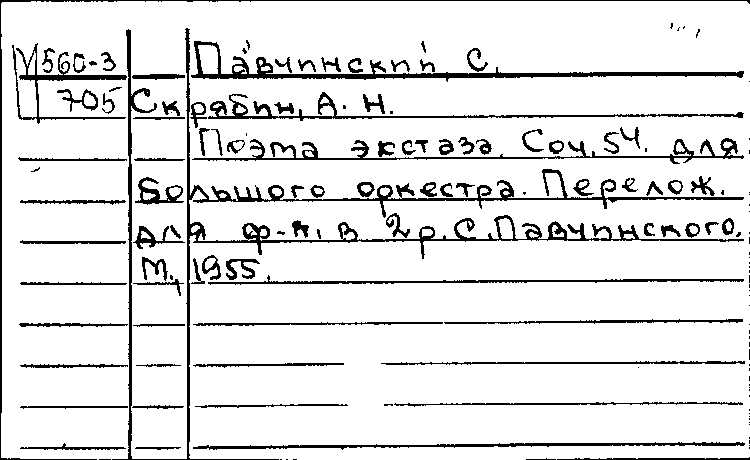 М560-3 Павчинский, С.
705 Скрябин, А. Н.
Поэма экстаза. Соч. 54. для
большого оркестра. Перелож.
для ф-п. в 2 р. С. Павчинского.
М., 1955.